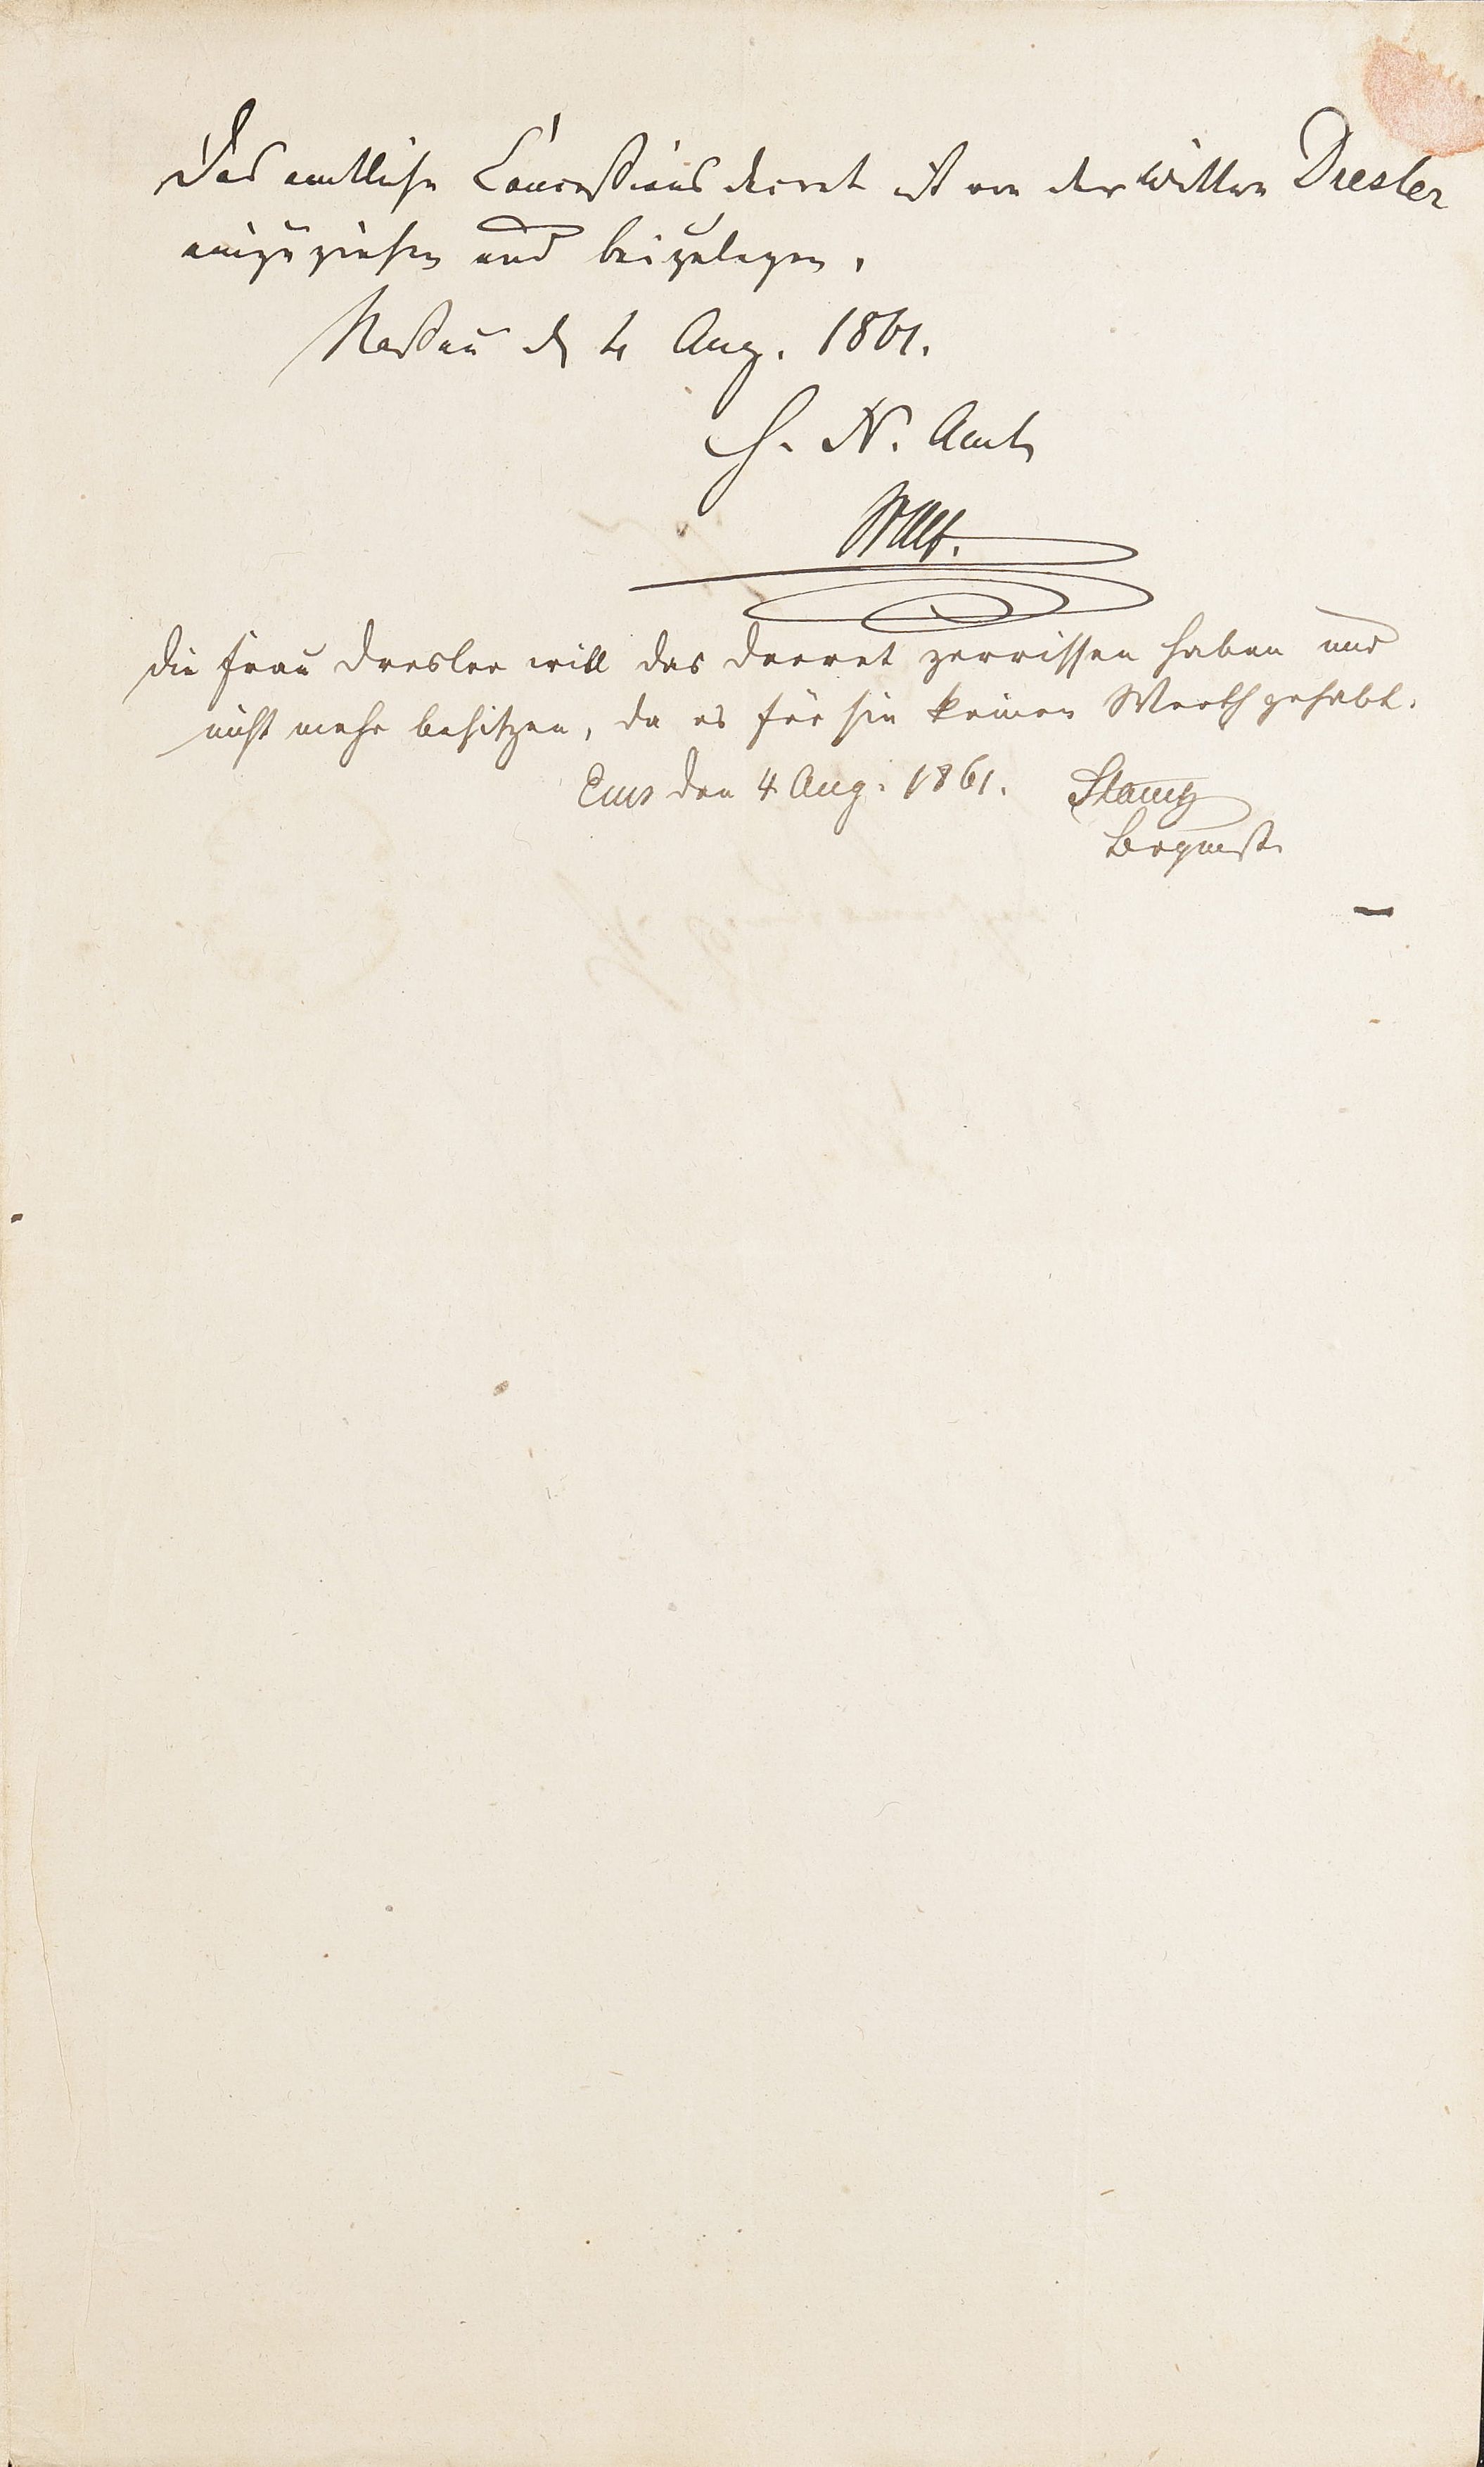 Das amtliche Concessions decret ist von der Wittwe Dresler
einzuziehen und beizulegen.
Nassau d 4 Aug. 1861.
H. N. Amt
Die Frau Dresler will das Decret zerrissen haben und
nicht mehr besitzen, da es für sie keinen Werth gehabt.
Ems den 4 Aug. 1861. Stamm
Brgmstr